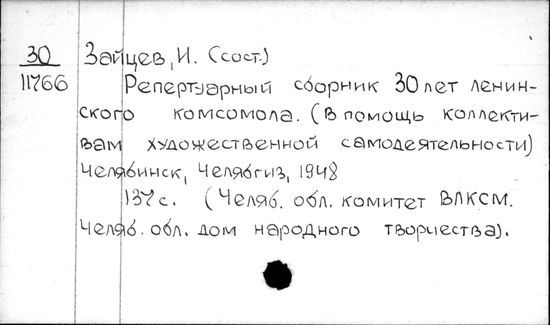 30 Зайцев, И. (сост.)
11766 Репертуарный сборник 30 лет ленин-
ского комсомола. (В помощь коллекти-
вам художественной самодеятельности)
Челябинск, Челябгиз, 1948
137 с. (Челяб. обл. комитет ВЛКСМ.
Челяб. обл. дом народного творчества).